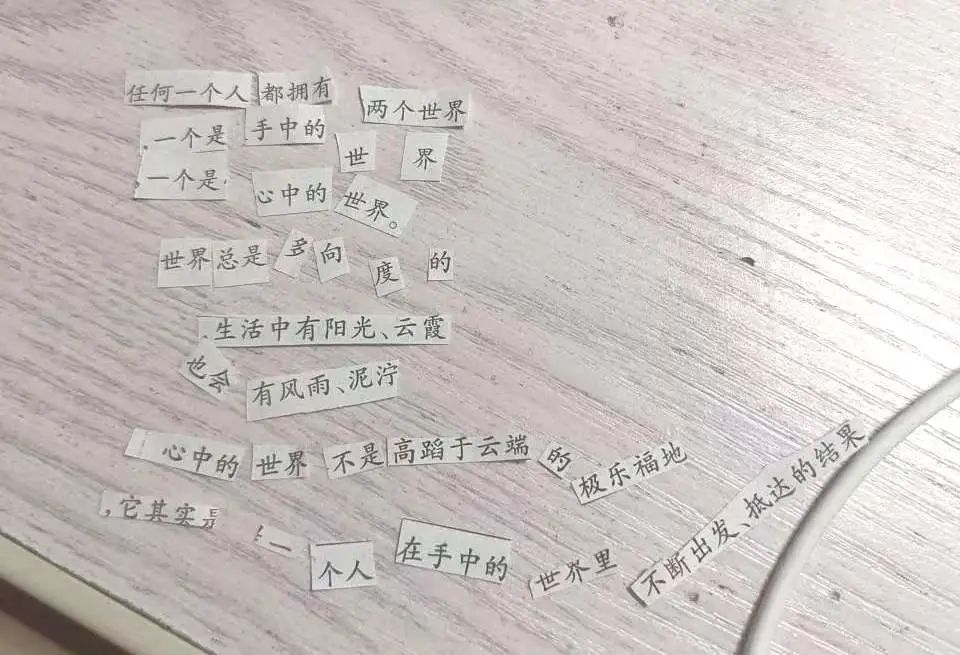 任何一个人都拥有两个世界
,一个是手中的世界
一个是,心中的世界。
世界总是多向度的
,生活中有阳光、云霞
也会有风雨、泥泞
心中的世界不是高蹈于云端的极乐福地
,它其实是
一个人在手中的世界里不断出发、抵达的结果